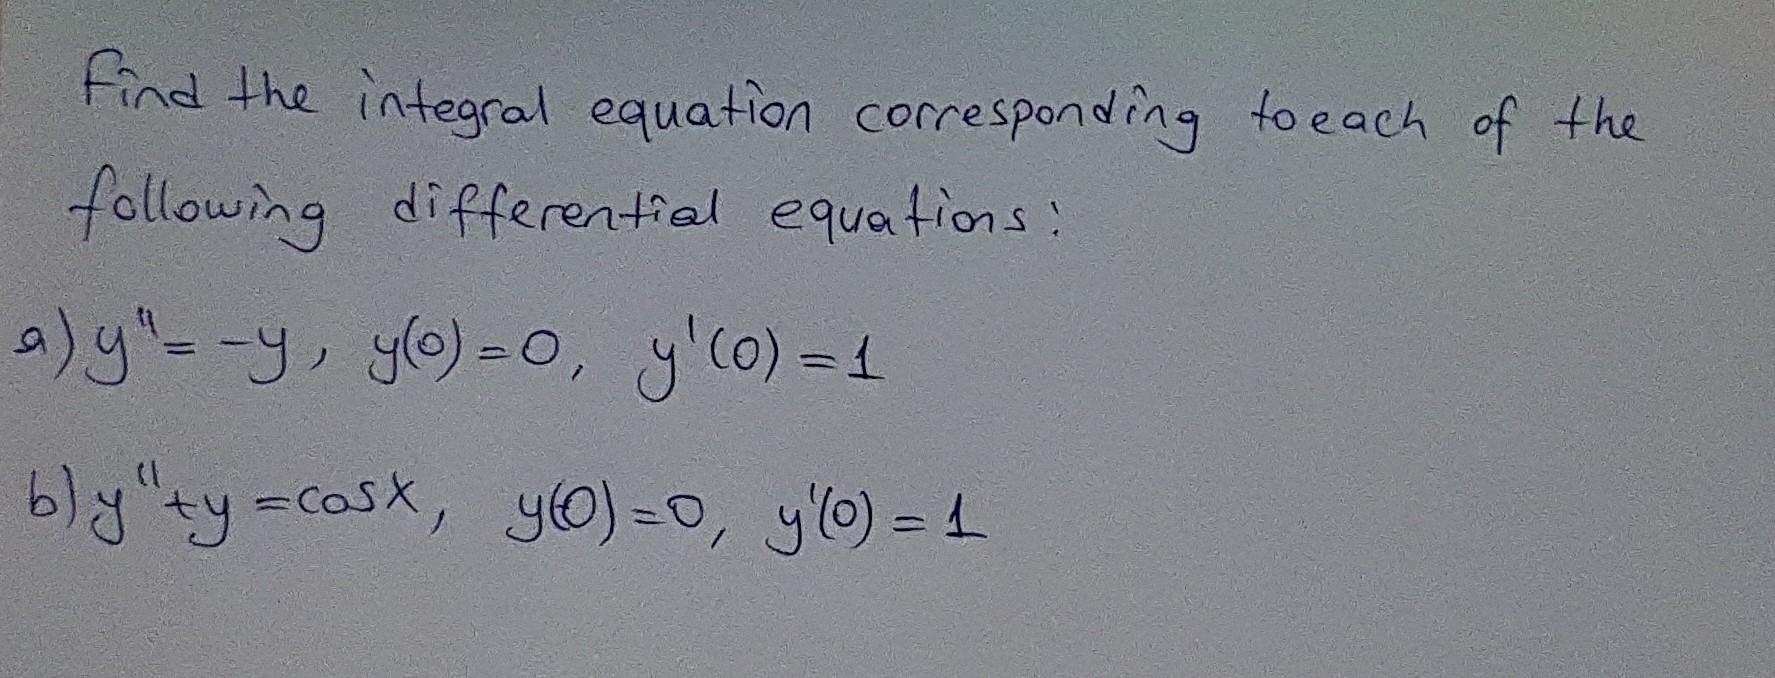 Find the integral equation corresponding to each of the
following differential equations:
a) y" = -y, y(0) = 0, y'(0) = 1
b) y" + y = cosx, y(0) = 0, y'(0) = 1